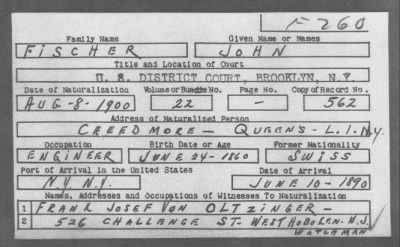 F-260
Family Name Given Name or Names
FISCHER JOHN
Title and Location of Court
U. S. DISTRICT COURT, BROOKLYN, N.Y.
Date of Naturalization Volume or Bundle No. Page No. Copy of Record No.
AUG-8-1900 22 - 562
Address of Naturalized Person
CREEDMORE - QUEENS - L.I. N.Y.
Occupation Birth Date or Age Former Nationality
ENGINEER JUNE 24-1860 SWISS
Port of Arrival in the United States Date of Arrival
N.Y. N.Y. JUNE 10-1890
Names, Addresses and Occupations of Witnesses To Naturalization
1 FRANK JOSEF VON OLTZINGER -
2 526 CHALLENGE ST. WEST HOBOKEN - N.J.
WATCHMAN